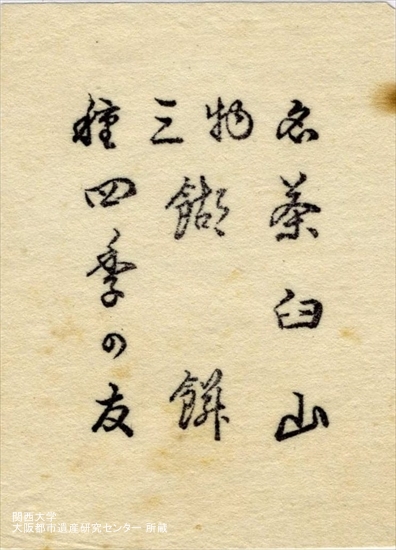 名物三種
茶臼山
餬餅
四季の友
関西大学
大阪都市遺産研究センター 所蔵